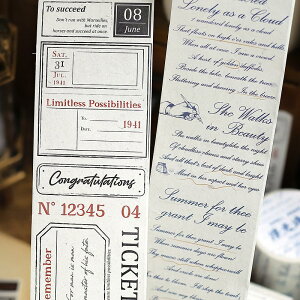 To succeed
Don't run with Marseilles,
but ride on
horses and succeed at once.
08
June
SAT.
31
JUL.
1941
Limitless Possibilities
TO
DATE
1941
Congratulations
N° 12345 04
TICKET
Remember
For man is man
master of his fate.
Lonely as a Cloud
I wandered lonely as a cloud
That floats on high o'er vales and hills,
When all at once I saw a crowd
A host of golden daffodils,
Beside the lake, beneath the trees
Fluttering and dancing in the
She Walks
in Beauty
She walks in beauty, like the night
Of cloudless climes and starry skies
And all that's best of dark and bright
Meet in her aspect and her eyes
Summer for thee
grant I may be
Summer for thee grant I may be
When summer days are flown!